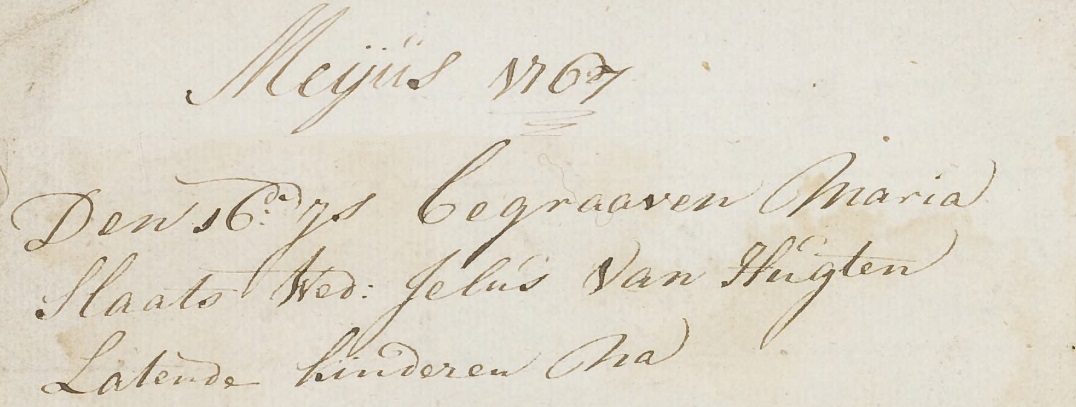 Meijüs 1767
Den 16:d js begraaven Maria
Slaats Wed: Jelüs Van Hügten
Latende kinderen Na